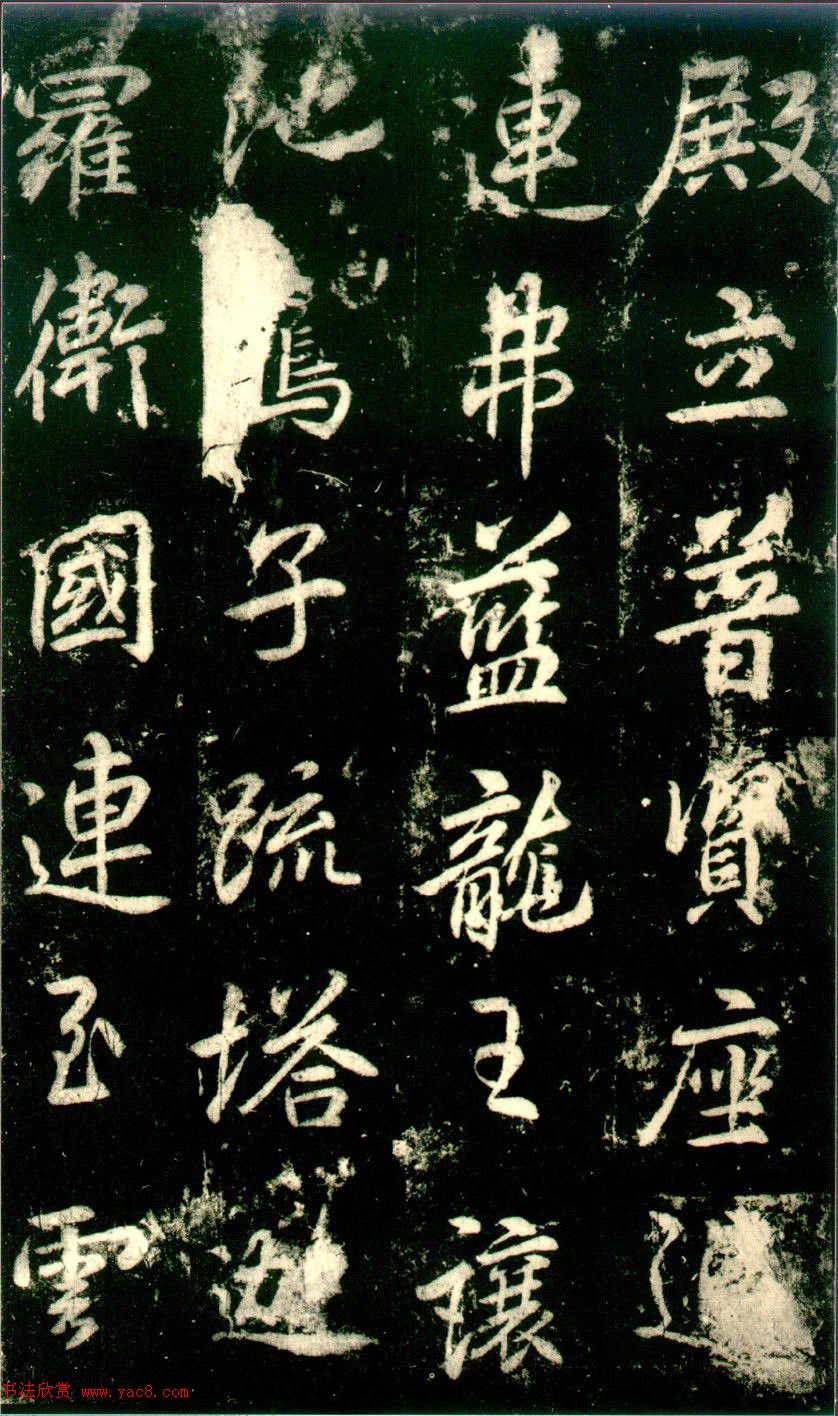 殿立普賢座
連弗藍龍王讓
池子疏塔迦
羅衛國連至雲
书法欣赏 www.yac8.com